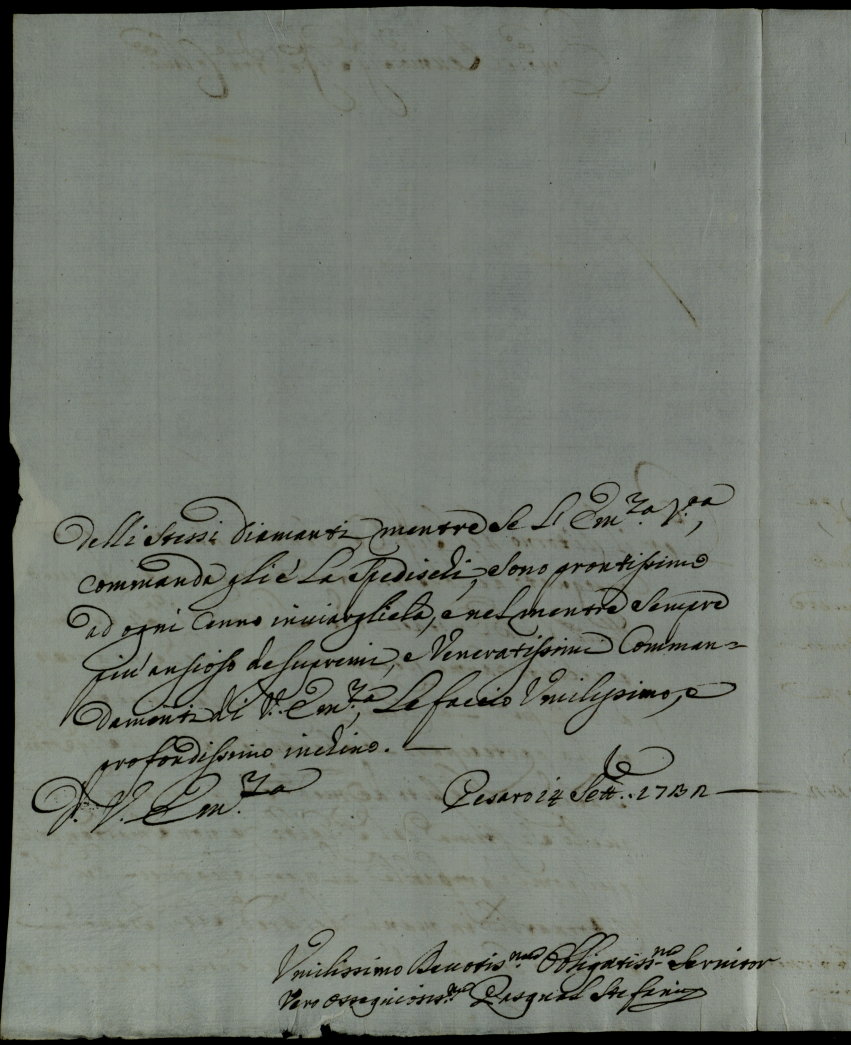 delli stessi diamanti, mentre se l' Em.za V.ra,
commanda glie La spedischi, sono prontissimo
ad ogni cenno inviargliela, e nel mentre sempre
più ansioso de supremi, e Veneratissimi Comman=
damenti di V. Em.za, Le faccio Vmilissimo, e
profondissimo inchino. —
D. V. Em.za
Pesaro 14 Sett.
Vmilissimo Deuotis.mo Obligatiss.mo Seruitor
Vero ossequiosis.mo Pasqual Stefani